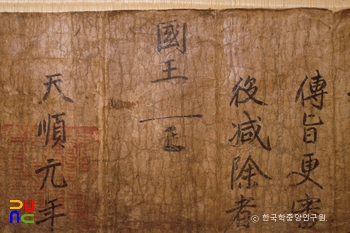 傳旨更審
役減除者
國王
天順元年
ⓒ 한국학중앙연구원